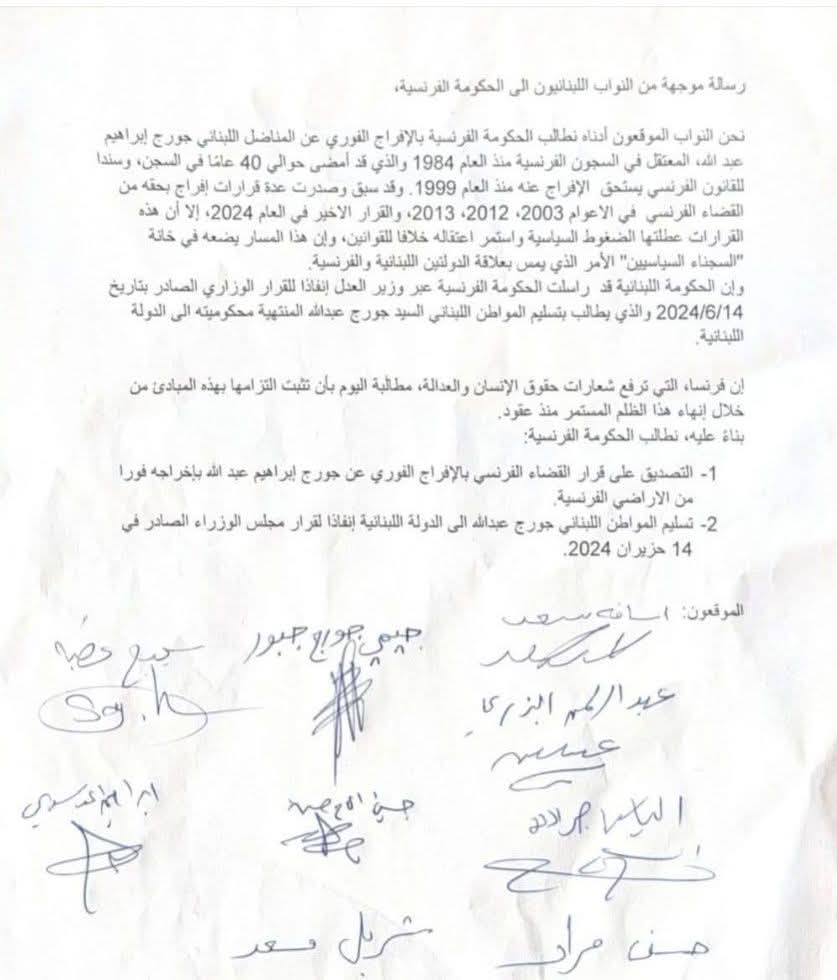 رسالة موجهة من النواب اللبنانيون الى الحكومة الفرنسية،
نحن النواب الموقعون أدناه نطالب الحكومة الفرنسية بالإفراج الفوري عن المناضل اللبناني جورج إبراهيم
عبد الله، المعتقل في السجون الفرنسية منذ العام 1984 والذي قد أمضى حوالي 40 عامًا في السجن، وسندا
للقانون الفرنسي يستحق الإفراج عنه منذ العام 1999. وقد سبق وصدرت عدة قرارات إفراج بحقه من
القضاء الفرنسي في الاعوام 2003، 2012، 2013، والقرار الاخير في العام 2024، إلا أن هذه
القرارات عطلتها الضغوط السياسية واستمر اعتقاله خلافا للقوانين، وإن هذا المسار يضعه في خانة
"السجناء السياسيين" الأمر الذي يمس بعلاقة الدولتين اللبنانية والفرنسية.
وإن الحكومة اللبنانية قد راسلت الحكومة الفرنسية عبر وزير العدل إنفاذا للقرار الوزاري الصادر بتاريخ
2024/6/14 والذي يطالب بتسليم المواطن اللبناني السيد جورج عبدالله المنتهية محكوميته الى الدولة
اللبنانية.
إن فرنسا، التي ترفع شعارات حقوق الإنسان والعدالة، مطالبة اليوم بأن تثبت التزامها بهذه المبادئ من
خلال إنهاء هذا الظلم المستمر منذ عقود.
بناءً عليه، نطالب الحكومة الفرنسية:
1- التصديق على قرار القضاء الفرنسي بالإفراج الفوري عن جورج إبراهيم عبد الله بإخراجه فورا
من الاراضي الفرنسية.
2- تسليم المواطن اللبناني جورج عبدالله الى الدولة اللبنانية إنفاذا لقرار مجلس الوزراء الصادر في
14 حزيران 2024.
الموقعون: اسامه سعد
جيمي جورج جبور
سجيع عطيه
عبد الرحمن البزري
الياس جراده
حسن مراد
شربل مسعد